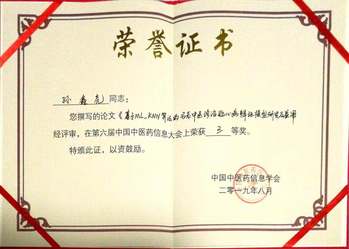 荣誉证书
孙鑫亮 同志：
您撰写的论文《基于ML_KNN算法的名老中医诊治冠心病辨证模型研究及应用
经评审，在第六届中国中医药信息大会上荣获 三 等奖。
特颁此证，以资鼓励。
中国中医药信息学会
二〇一九年八月